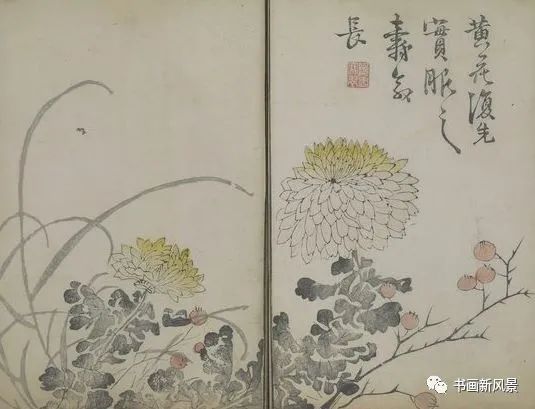 黄花復先
實服之
壽命
長
书画新风景